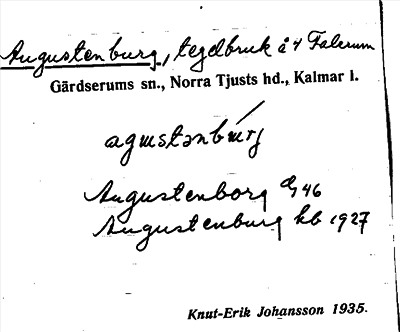 Augustenburg, tegelbruk å 4 Falerum
Gärdserums sn., Norra Tjusts hd., Kalmar l.
agustənbúrg
Augustenborg G 46
Augustenburg kb 1927
Knut-Erik Johansson 1935.